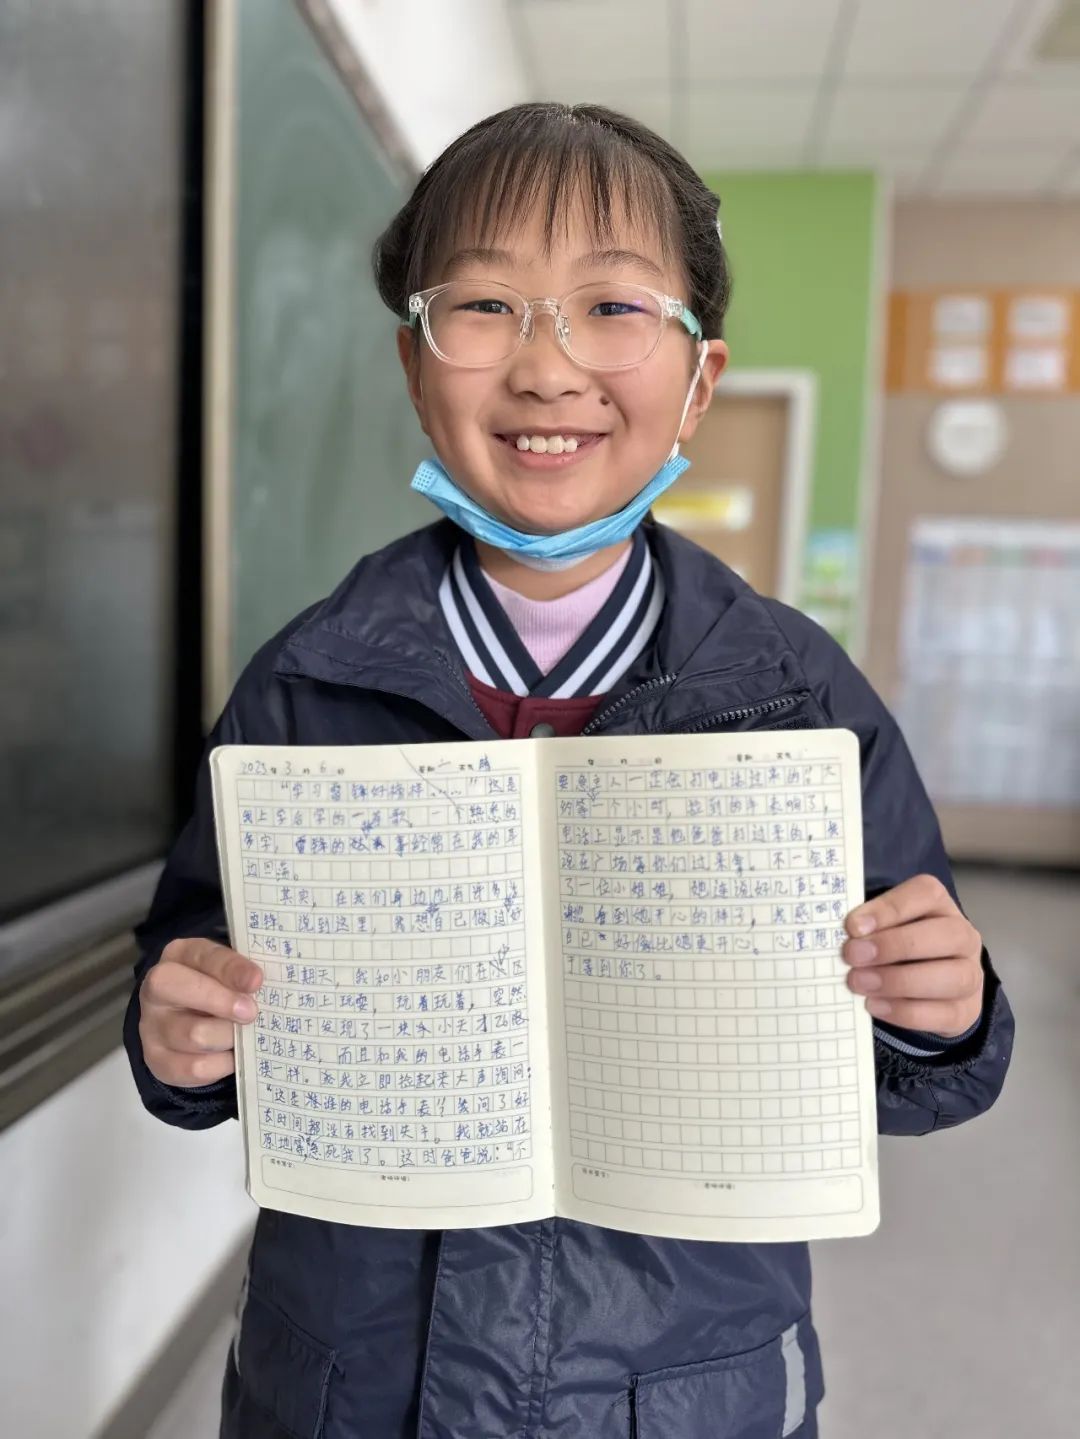 2023年3月6日 星期一 天气晴
“学习雷锋好榜样……”这是
我上学后学的一首歌。一个熟悉的
名字，雷锋的故事经常在我的耳
边回荡。
其实，在我们身边也有许多
雷锋。说到这里，我想自己做过好
人好事。
星期天，我和小朋友们在小区
内的广场上玩耍，玩着玩着，突然
在我脚下发现了一块小天才Z6
电话手表，而且和我的电话手表一
模一样。我立即捡起来大声询问：
“这是谁谁的电话手表”？我问了好
长时间都没有找到失主。我就站在
原地等，急死我了。这时爸爸说：“不
要急主人一定会打电话过来的”。大
约等一个小时，捡到的手表响了，
电话上显示是他爸爸打过来的，我
说在广场等你们过来拿。不一会来
了一位小姐姐，她连说好几声：“谢
谢”看到她开心的样子，我感觉
自己好像比她更开心。心里想终
于等到你了。
年 月 日 星期 天气
家长签字：
老师评语：
家长签字：
老师评语：